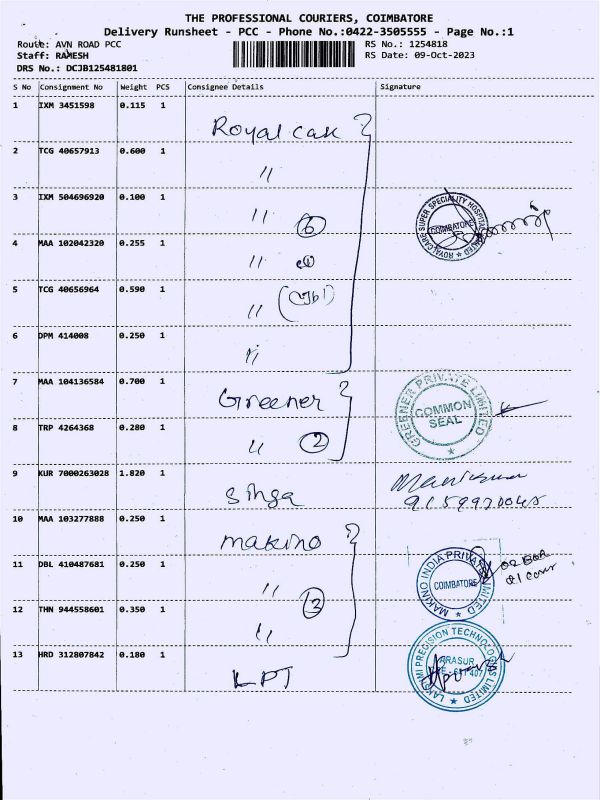 THE PROFESSIONAL COURIERS, COIMBATORE
Delivery Runsheet - PCC - Phone No.:0422-3505555 - Page No.:1
Route: AVN ROAD PCC
RS No.: 1254818
Staff: RAMESH
RS Date: 09-Oct-2023
DRS No.: DCJB125481801
S No Consignment No Weight PCS Consignee Details Signature
1 IXM 3451598 0.115 1
Royal care
2 TCG 40657913 0.600 1
"
3 IXM 504696920 0.100 1
" 6
ROYAL CARE SUPER SPECIALITY HOSPITAL LIMITED
COIMBATORE
4 MAA 102042320 0.255 1
"
5 TCG 40656964 0.590 1
"
6 DPM 414008 0.250 1
"
7 MAA 104136584 0.700 1
Greener
GREENER PRIVATE LIMITED
COMMON
SEAL
8 TRP 4264368 0.280 1
" 2
9 KUR 7000263028 1.820 1
Singa
10 MAA 103277888 0.250 1
makino
11 DBL 410487681 0.250 1
" 3
MAKINO INDIA PRIVATE LIMITED
COIMBATORE
12 THN 944558601 0.350 1
"
13 HRD 312807842 0.180 1
LPT
LAKSHMI PRECISION TECHNOLOGIES LIMITED
ARASUR
641 407